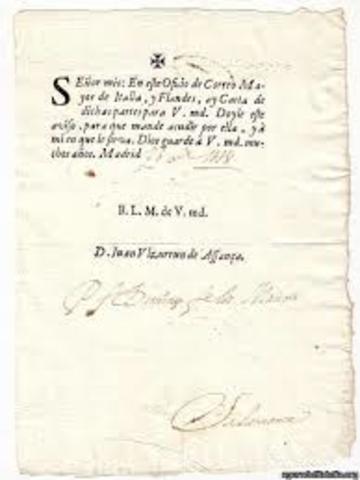 SEñor mio: En este Oficio de Correo Ma-
yor de Italia, y Flandes, ay Carta de
dichas partes para V. md. Doyle este
aviso, para que mande acudir por ella, y à
mi en que le sirva. Dios guarde à V. md. mu-
chos años. Madrid
B. L. M. de V. md.
D. Iuan Vizarrun de Assança.
Salamanca